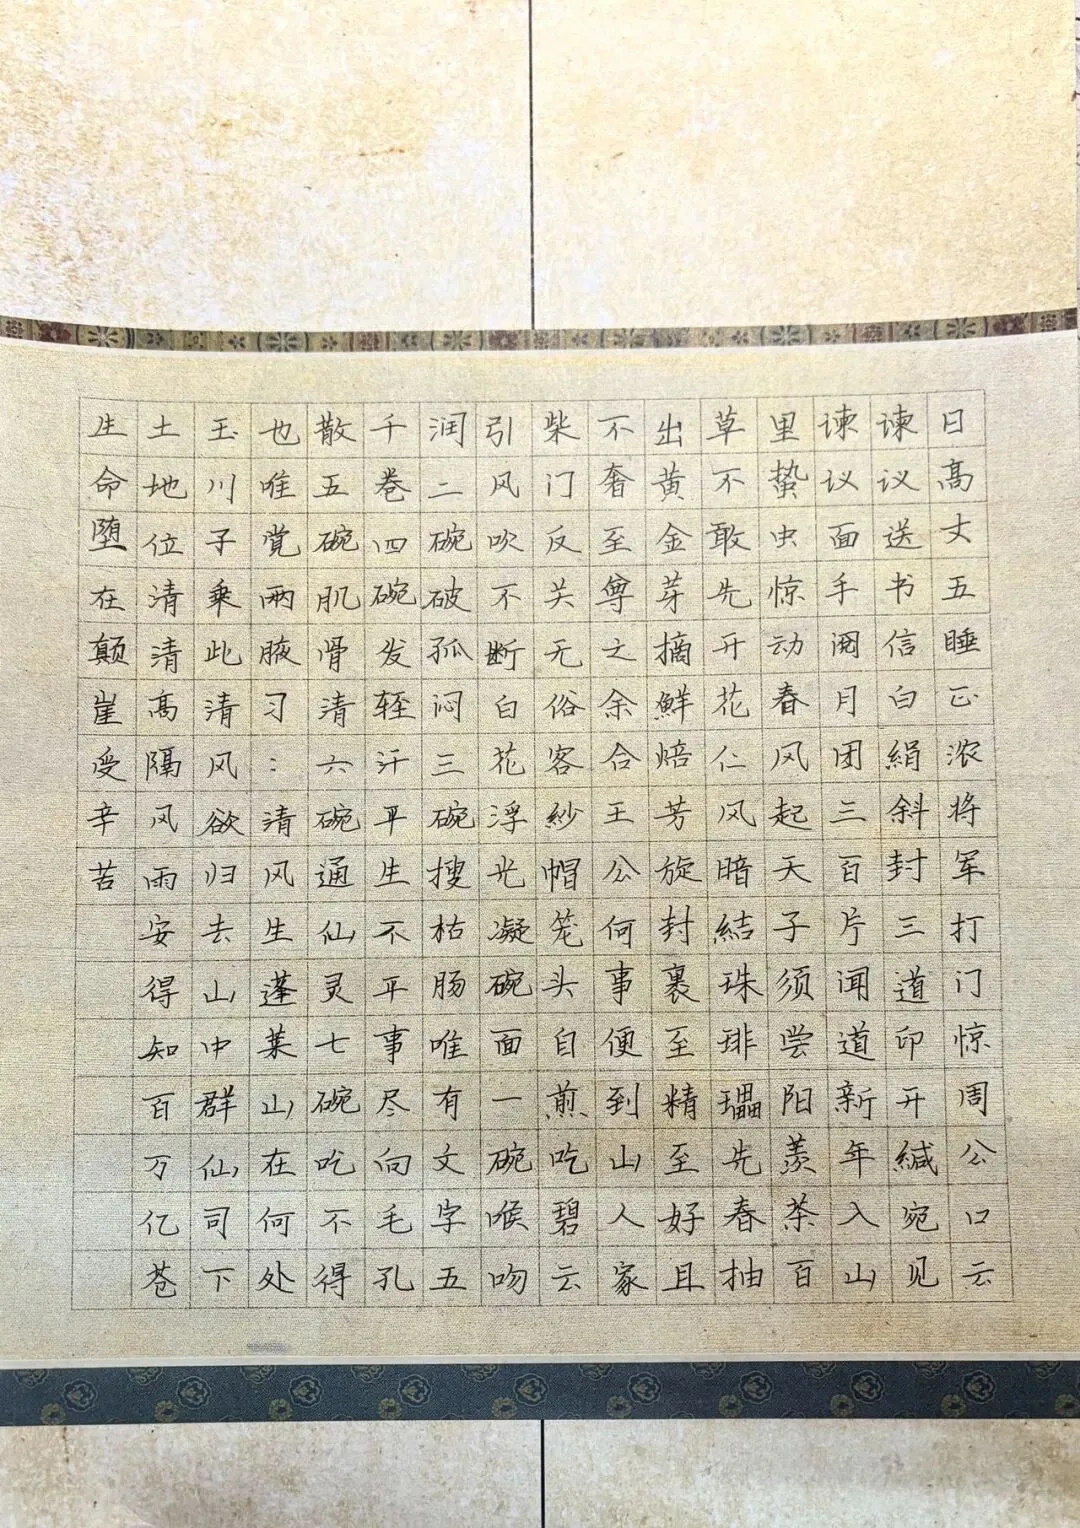 日高丈五睡正浓将军打门惊周公口云
谏议送书信白絹斜封三道印开緘宛见
谏议面手阅月团三百片闻道新年入山
里蛰虫惊动春风起天子须尝阳羡茶百
草不敢先开花仁风暗結珠琲瓃先春抽
出黄金芽摘鮮焙芳旋封裹至精至好且
不奢至尊之余合王公何事便到山人家
柴门反关无俗客紗帽笼头自煎吃碧云
引风吹不断白花浮光凝碗面一碗喉吻
润二碗破孤闷三碗搜枯肠唯有文字五
千卷四碗发轻汗平生不平事尽向毛孔
散五碗肌骨清六碗通仙灵七碗吃不得
也唯觉两腋习：清风生蓬莱山在何处
玉川子乘此清风欲归去山中群仙司下
土地位清清高隔风雨安得知百万亿苍
生命堕在颠崖受辛苦